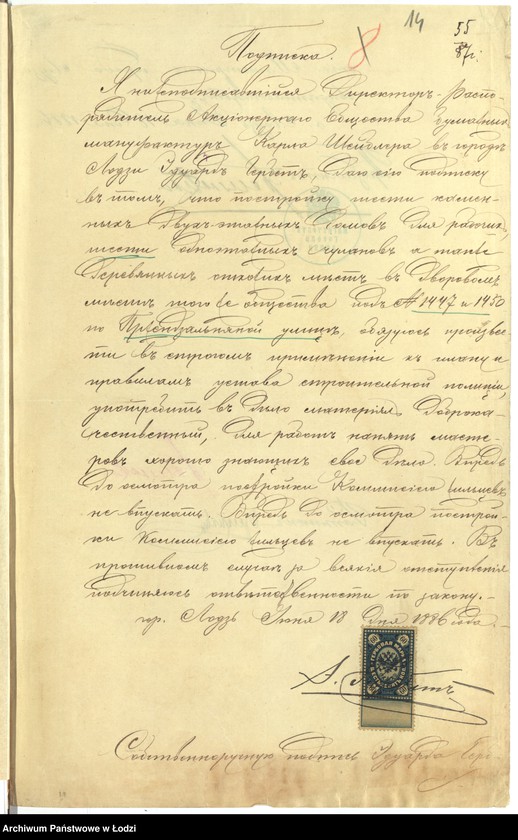 14
55
87 г.
8
Подписка.
Я нижеподписавшійся Директоръ-Распо-
рядитель Акціонернаго Общества бумажныхъ
мануфактуръ Карла Шейблера въ городѣ
Лодзи Эдуардъ Гербстъ, даю сію подписку
въ томъ, что постройку шести камен-
ныхъ двухъ-этажныхъ домовъ для рабочихъ,
шести одноэтажныхъ чулановъ а также
деревянныхъ отхожихъ мѣстъ въ дворовомъ
мѣстѣ того же общества подъ № 1447 и 1450
по Прендзальняной улицѣ, обязуюсь произвес-
ти въ строгомъ примѣненіи къ плану и
правиламъ устава строительной полиціи,
употребить въ дѣло матеріялъ доброка-
чественный, для работъ нанять масте-
ровъ хорошо знающихъ свое дѣло. Впредь
до осмотра постройки Коммисіею жильцевъ
не впускать. Впредь до осмотра построй-
ки Коммисіею жильцевъ не впускать. Въ
противномъ случаѣ за всякія отступленія
подчиняюсь отвѣтственности по закону.-
гр. Лодзь Іюня 18 дня 1886 года.
ГЕРБОВАЯ МАРКА
Собственноручную подпись Эдуарда Герб-
Archiwum Państwowe w Łodzi